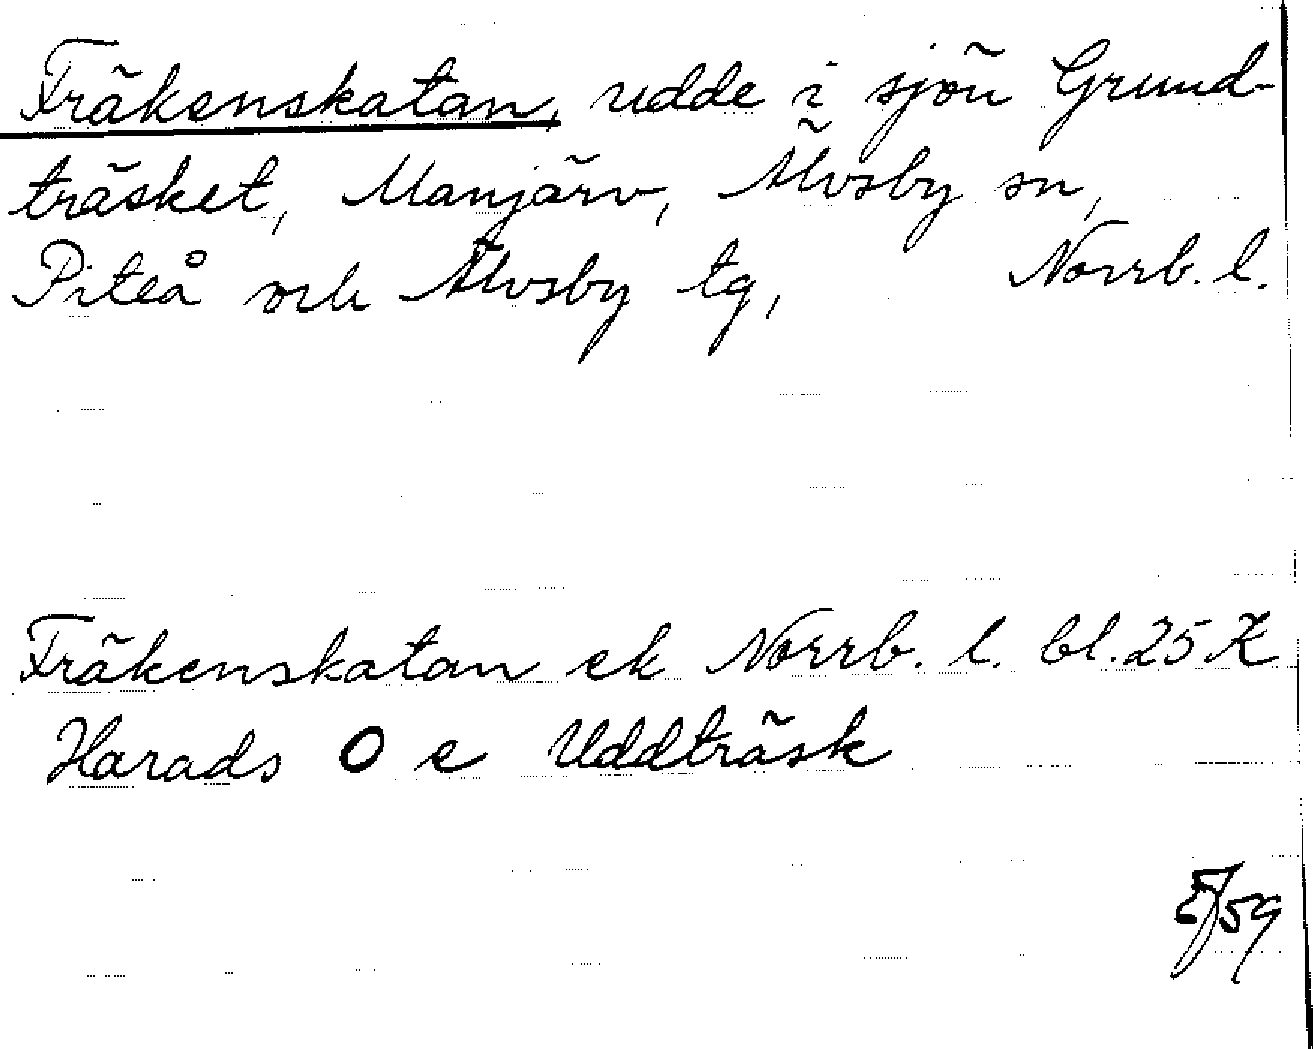 Fräkenskatan, udde i sjön Grund-
träsket, Manjärv, Älvsby sn,
Piteå och Älvsby tg, Norrb. l.
Fräkenskatan ek Norrb. l. bl. 25 K
Harads O e Uddträsk
5/59